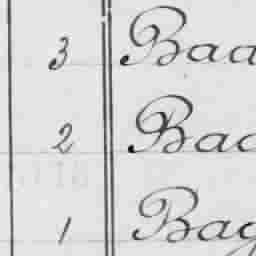 3 Baa
2 Bac
1 Bag